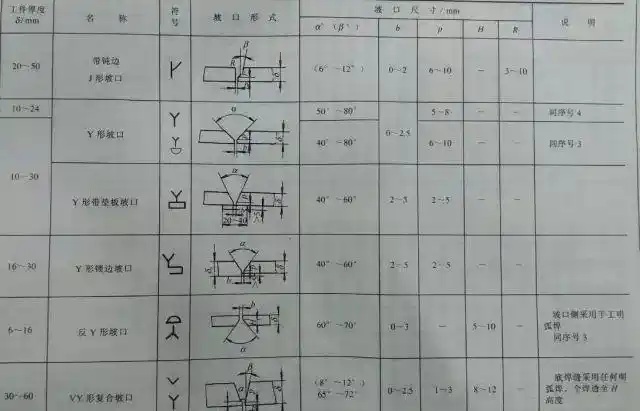 工件厚度
δ/mm
名 称
符
号
坡 口 形 式
坡 口 尺 寸/mm
α°（β°）
b
p
H
R
说 明
20～50
带钝边
J形坡口
β
R
（6°～12°）
0～2
6～10
—
3～10
10～24
10～30
Y形坡口
α
50°～80°
0～2.5
5～8
—
—
同序号4
40°～80°
6～10
—
—
同序号3
Y形带垫板坡口
α
20～40
40°～60°
2～5
2～5
—
—
16～30
Y形锁边坡口
α
40°～60°
2～5
2～5
—
—
6～16
反Y形坡口
b
α
60°～70°
0～3
—
5～10
—
坡口侧采用手工明
弧焊
同序号3
30～60
VY形复合坡口
β
α
（8°～12°）
65°～72°
0～2.5
1～3
8～12
—
底焊缝采用任何明
弧焊，个焊透全H
高度